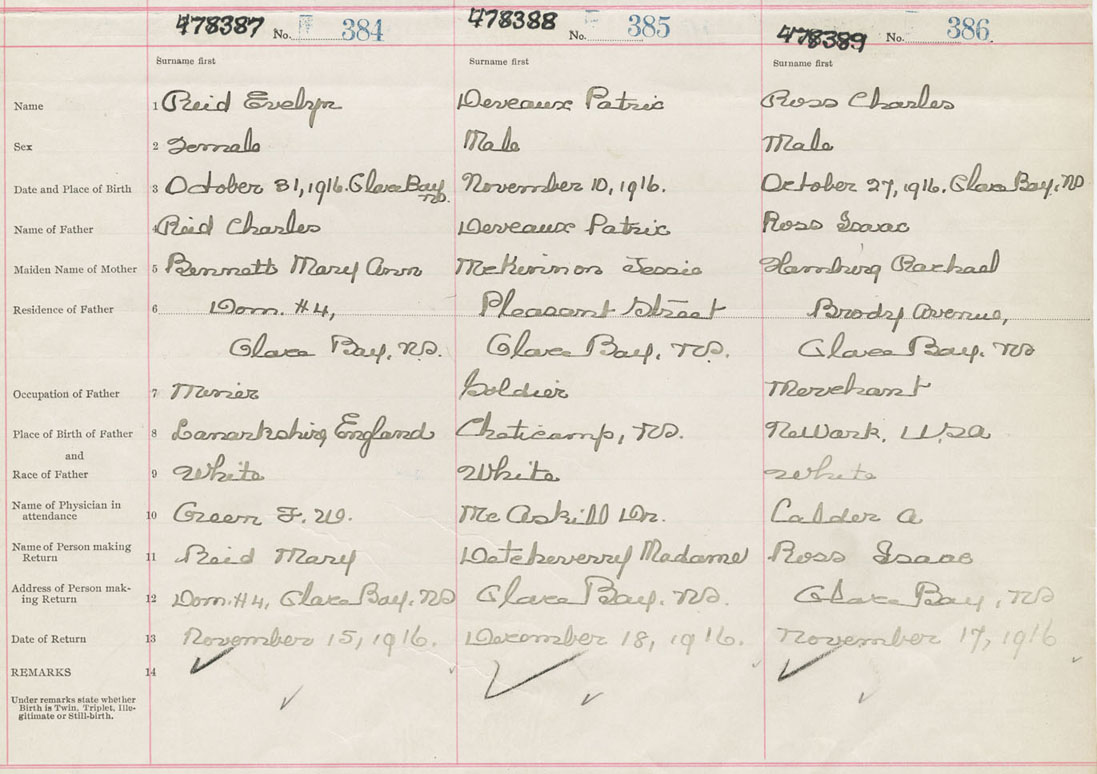 478387 No. 384 478388 No. 385 478389 No. 386
Surname first Surname first Surname first
Name 1 Reid Evelyn Deveaux Patric Ross Charles
Sex 2 Female Male Male
Date and Place of Birth 3 October 31, 1916. Glace Bay NS. November 10, 1916. October 27, 1916. Glace Bay, NS
Name of Father 4 Reid Charles Deveaux Patric Ross Isaac
Maiden Name of Mother 5 Bennett Mary Ann McKinnon Jessie Hamburg Rachael
Residence of Father 6 Dom. #4, Pleasant Street Brody Avenue,
Glace Bay, NS. Glace Bay, NS. Glace Bay, NS
Occupation of Father 7 Miner Soldier Merchant
Place of Birth of Father 8 Lanarkshire, England Cheticamp, NS. NeWark, USA
and
Race of Father 9 White White White
Name of Physician in
attendance 10 Green F. W. Mc Askill Dr. Calder A
Name of Person making
Return 11 Reid Mary Detcheverry Madame Ross Isaac
Address of Person mak-
ing Return 12 Dom. #4, Glace Bay, NS Glace Bay, NS. Glace Bay, NS
Date of Return 13 November 15, 1916. December 18, 1916. November 17, 1916
REMARKS 14
Under remarks state whether
Birth is Twin, Triplet, Ille-
gitimate or Still-birth.